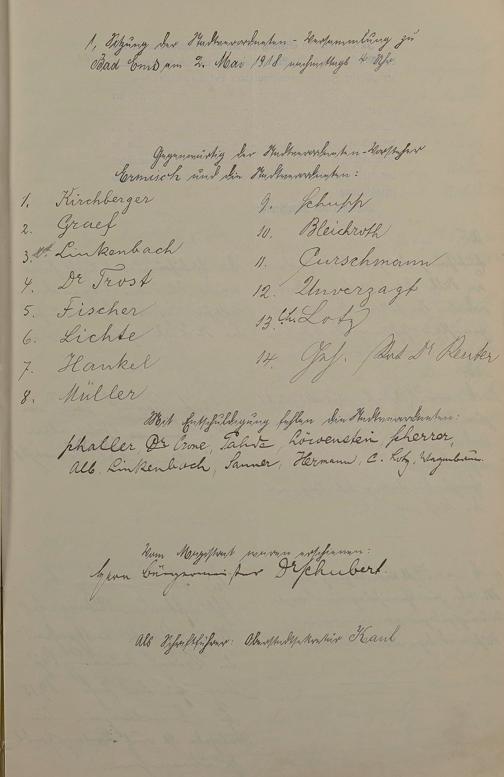 1, Sitzung der Stadtverordneten-Versammlung zu
Bad Ems am 2. Mai 1918 nachmittags 4 Uhr.
Gegenwärtig der Stadtverordneten-Vorsteher
Ermisch und die Stadtverordneten:
1. Kirchberger
2. Graef
3. Linkenbach
4. Dr Trost
5. Fischer
6. Lichte
7. Hankel
8. Müller
9. Schupp
10. Bleichroth
11. Curschmann
12. Unverzagt
13. Ch. Lotz
14. Geh. Rat Dr Reuter
Mit Entschuldigung fehlen die Stadtverordneten:
Phaller, Dr Crone, Löwenstein, Scherrer,
Alb. Linkenbach, Sanner, Hermann, C. Lotz,
Vom Magistrat waren erschienen:
Herr Bürgermeister Dr Schubert.
Als Schriftführer: Oberstadtsekretär Kaul